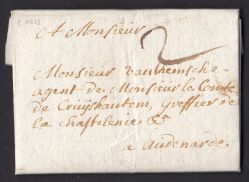 A Monsieur
2
Monsieur vanhemsche
agent de Monsieur le Comte
de Cruijshautem, greffier de
la chastelenie &c
a Audenarde